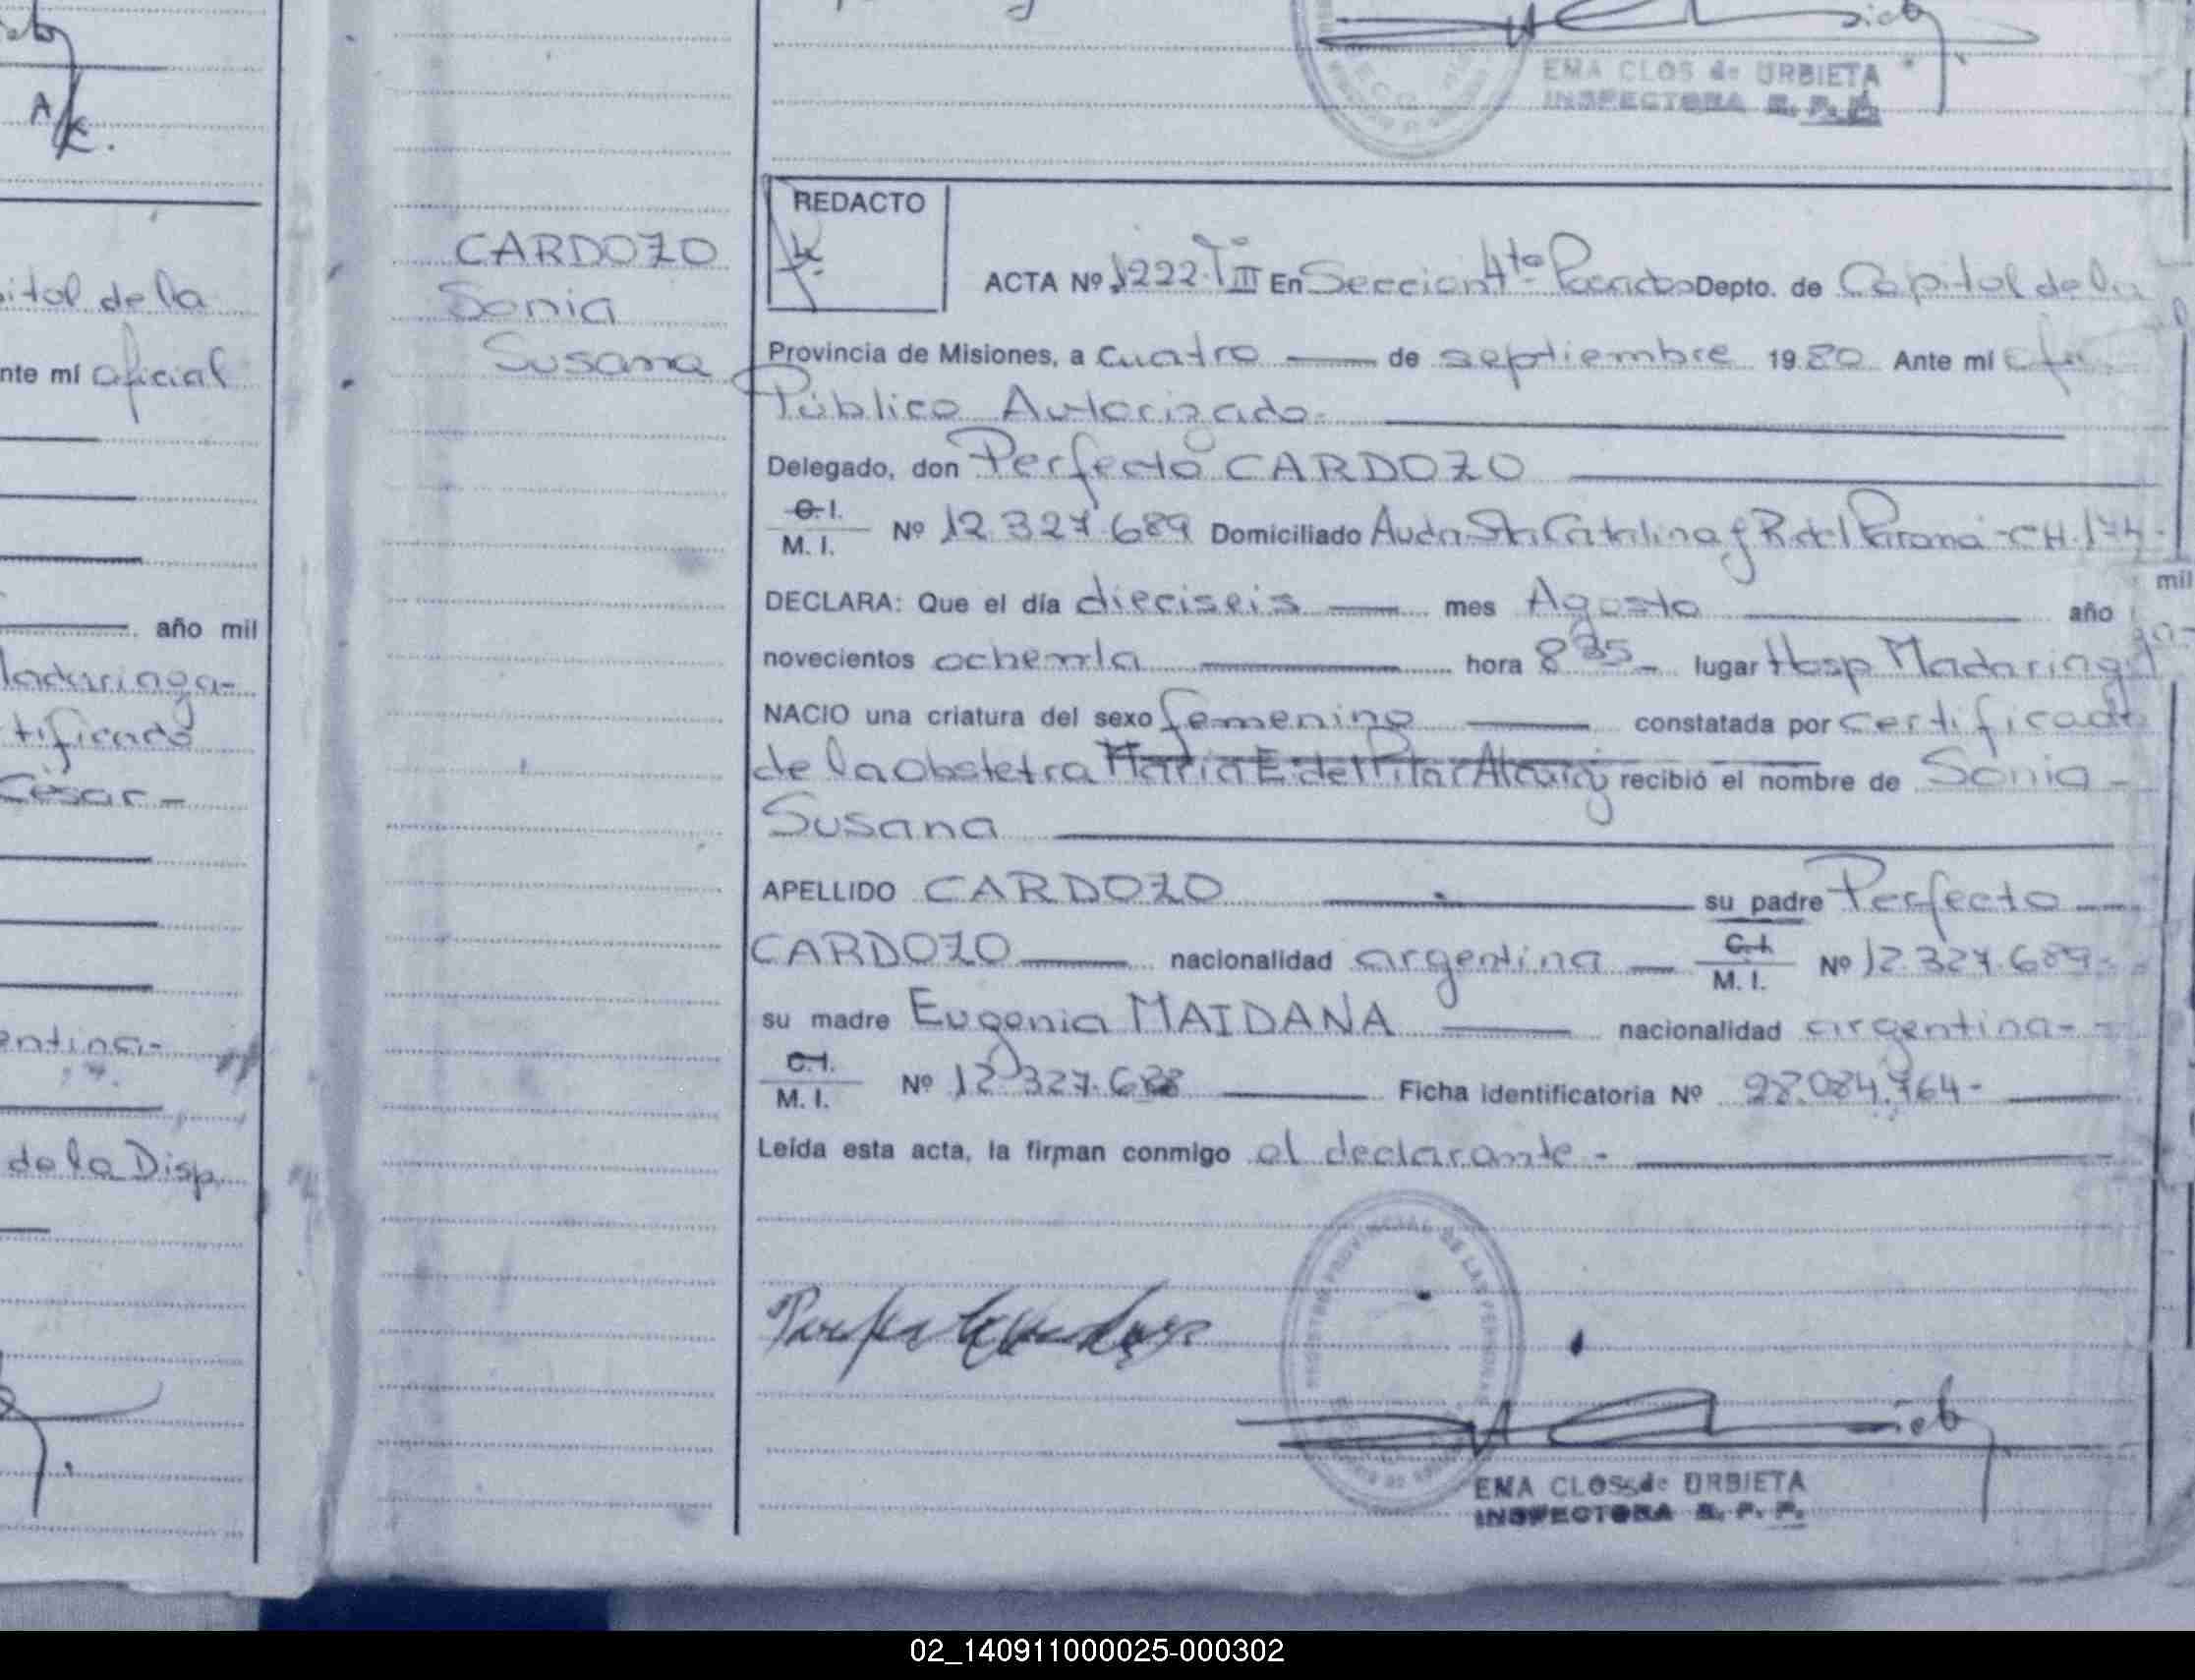 A/k.
itol de la
nte mí oficial
año mil
Madariaga-
tificado
César-
entina-
de la Disp.
CARDOZO
Sonia
Susana
EMA CLOS de URBIETA
INSPECTORA R. P. P.
REDACTO
ACTA Nº 1222-Tº III En Seccion 4ta Posadas Depto. de Capital de la
Provincia de Misiones, a cuatro de septiembre 1980 Ante mí
Público Autorizado.
Delegado, don Perfecto CARDOZO
C.I.
M. I. Nº 12.327.689 Domiciliado Avda Sta Catalina y R. del Paraná-CH.174-
DECLARA: Que el día dieciseis mes Agosto año mil
novecientos ochenta hora 8 35- lugar Hosp Madariaga-
NACIO una criatura del sexo femenino constatada por certificado
de la Obstetra Maria E. del Pilar recibió el nombre de Sonia-
Susana
APELLIDO CARDOZO su padre Perfecto
CARDOZO nacionalidad argentina C.I. M. I. Nº 12.327.689-
su madre Eugenia MAIDANA nacionalidad argentina-
C.I.
M. I. Nº 12.327.688 Ficha identificatoria Nº 28.084.764-
Leída esta acta, la firman conmigo el declarante-
REGISTRO PROVINCIAL DE LAS PERSONAS
EMA CLOS de URBIETA
INSPECTORA R. P. P.
02_140911000025-000302